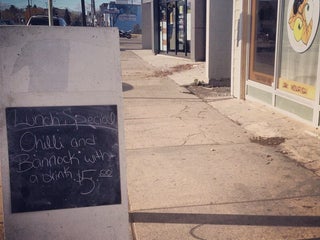 Lunch Special
Chilli and
Bannock with
a drink $5.00